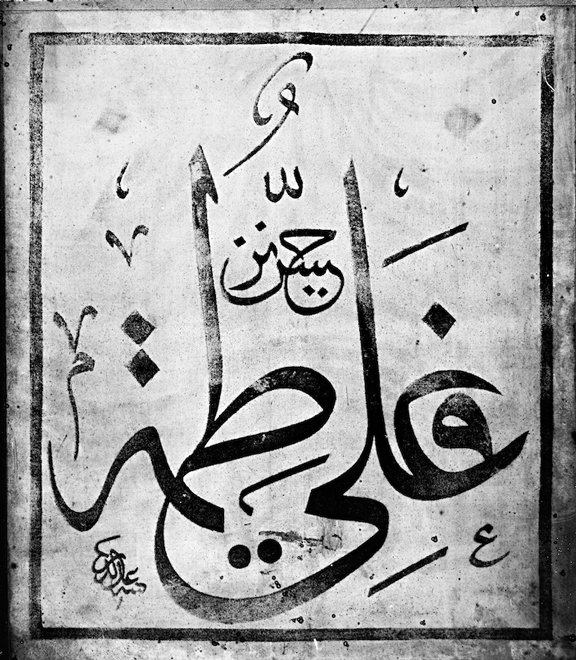 حسنين
علي فاطمة